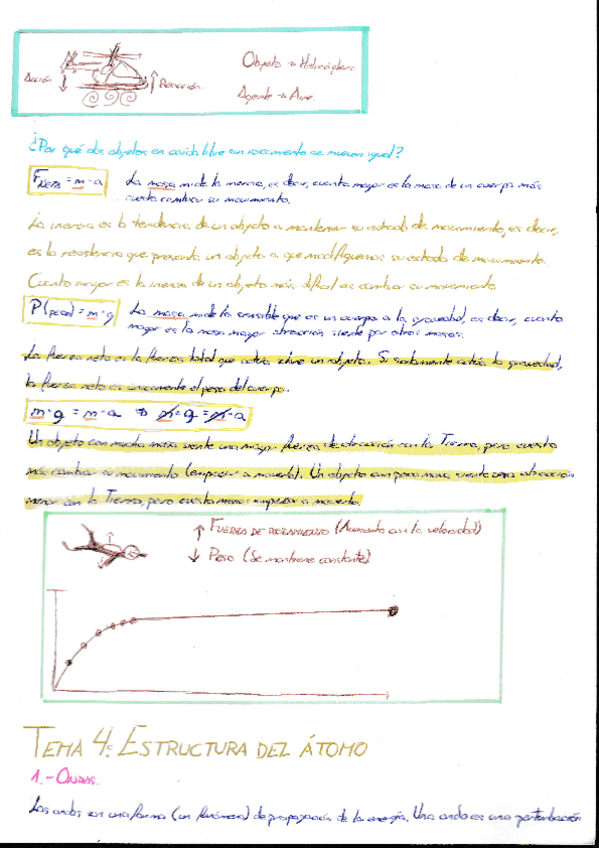 Objeto → Helicóptero
Acción
Reacción
Agente → Aire.
¿Por qué dos objetos en caída libre sin rozamiento se mueven igual?
F neta = m · a
La masa mide la inercia, es decir, cuanto mayor es la masa de un cuerpo más
cuesta cambiar su movimiento.
La inercia es la tendencia de un objeto a mantener su estado de movimiento, es decir,
es la resistencia que presenta un objeto a que modifiquemos su estado de movimiento.
Cuanto mayor es la inercia de un objeto más difícil es cambiar su movimiento
P (peso) = m · g
La masa mide lo sensible que es un cuerpo a la gravedad, es decir, cuanto
mayor es la masa mayor atracción siente por otras masas.
La fuerza neta es la fuerza total que actúa sobre un objeto. Si solamente actúa la gravedad,
la fuerza neta es únicamente el peso del cuerpo.
m·g = m·a ⇒ m·g = m·a
Un objeto con mucha masa siente una mayor fuerza de atracción con la Tierra, pero cuesta
más cambiar su movimiento (empezar a moverlo). Un objeto con poca masa siente una atracción
menor con la Tierra, pero cuesta menos empezar a moverlo.
↑ FUERZA DE ROZAMIENTO (Aumenta con la velocidad)
↓ Peso (Se mantiene constante)
TEMA 4: ESTRUCTURA DEL ÁTOMO
1.- ONDAS.
Las ondas son una forma (un fenómeno) de propagación de la energía. Una onda es una perturbación